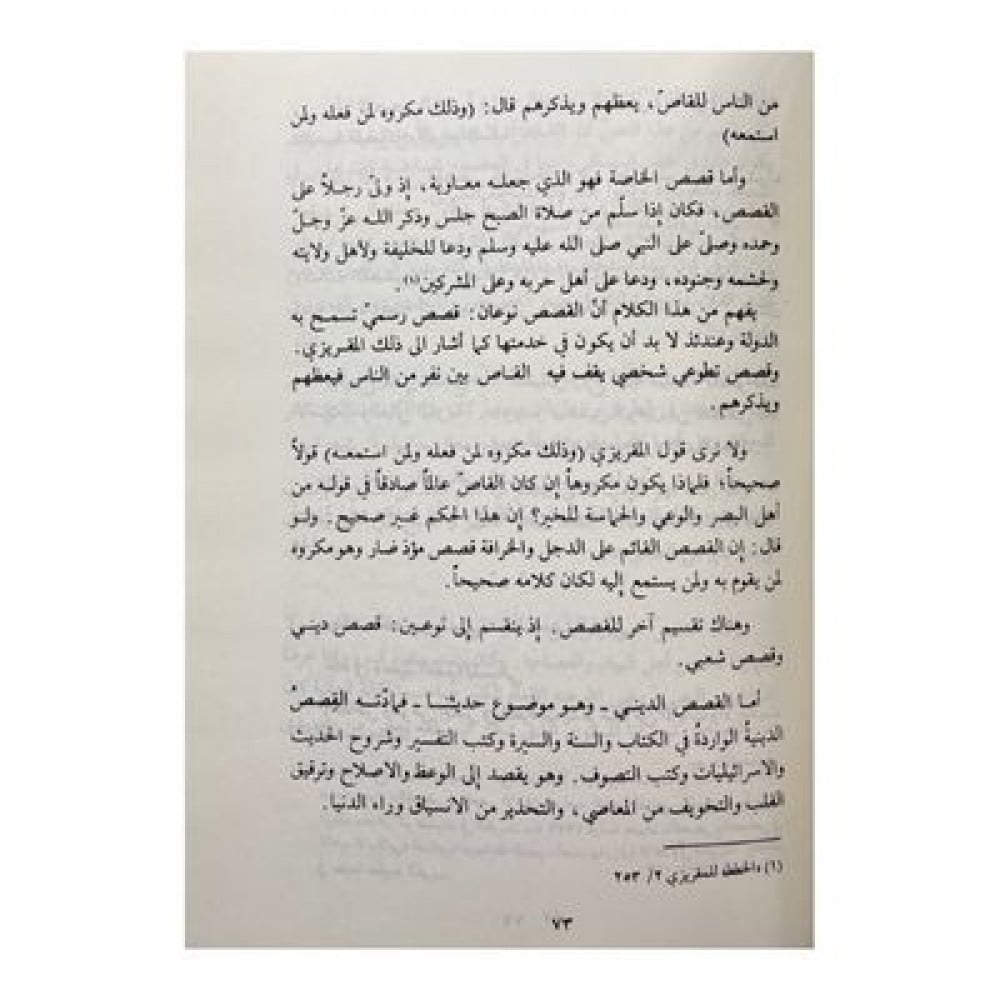 من الناس للقاصّ، يعظهم ويذكرهم قال: (وذلك مكروه لمن فعله ولمن
استمعه)
وأما قصص الخاصة فهو الذي جعله معاوية، إذ ولّى رجلاً على
القصص، فكان إذا سلّم من صلاة الصبح جلس وذكر الله عزّ وجلّ
وحمده وصلىّ على النبي صلى الله عليه وسلم ودعا للخليفة ولأهل ولايته
ولحشمه وجنوده، ودعا على أهل حربه وعلى المشركين(١).
يفهم من هذا الكلام أنّ القصص نوعان: قصص رسميّ تسمح به
الدولة وعندئذ لا بد أن يكون في خدمتها كما أشار الى ذلك المقريزي.
وقصص تطوعي شخصي يقف فيه القاص بين نفر من الناس فيعظهم
ويذكرهم.
ولا نرى قول المقريزي (وذلك مكروه لمن فعله ولمن استمعه) قولاً
صحيحاً؛ فلماذا يكون مكروهاً إن كان القاصّ عالماً صادقاً في قوله من
أهل البصر والوعي والحماسة للخير؟ إن هذا الحكم غير صحيح. ولو
قال: إن القصص القائم على الدجل والخرافة قصص مؤذ ضار وهو مكروه
لمن يقوم به ولمن يستمع إليه لكان كلامه صحيحاً.
وهناك تقسيم آخر للقصص. إذ ينقسم إلى نوعين: قصص ديني
وقصص شعبي.
أما القصص الديني ـ وهو موضوع حديثنا ـ فمادّته القِصصُ
الدينيةُ الواردةُ في الكتاب والسنة والسيرة وكتب التفسير وشروح الحديث
والاسرائيليات وكتب التصوف. وهو يقصد إلى الوعظ والاصلاح وترقيق
القلب والتخويف من المعاصي، والتحذير من الانسياق وراء الدنيا.
(١) «الخطط للمقريزي ٢/ ٢٥٣
٧٣